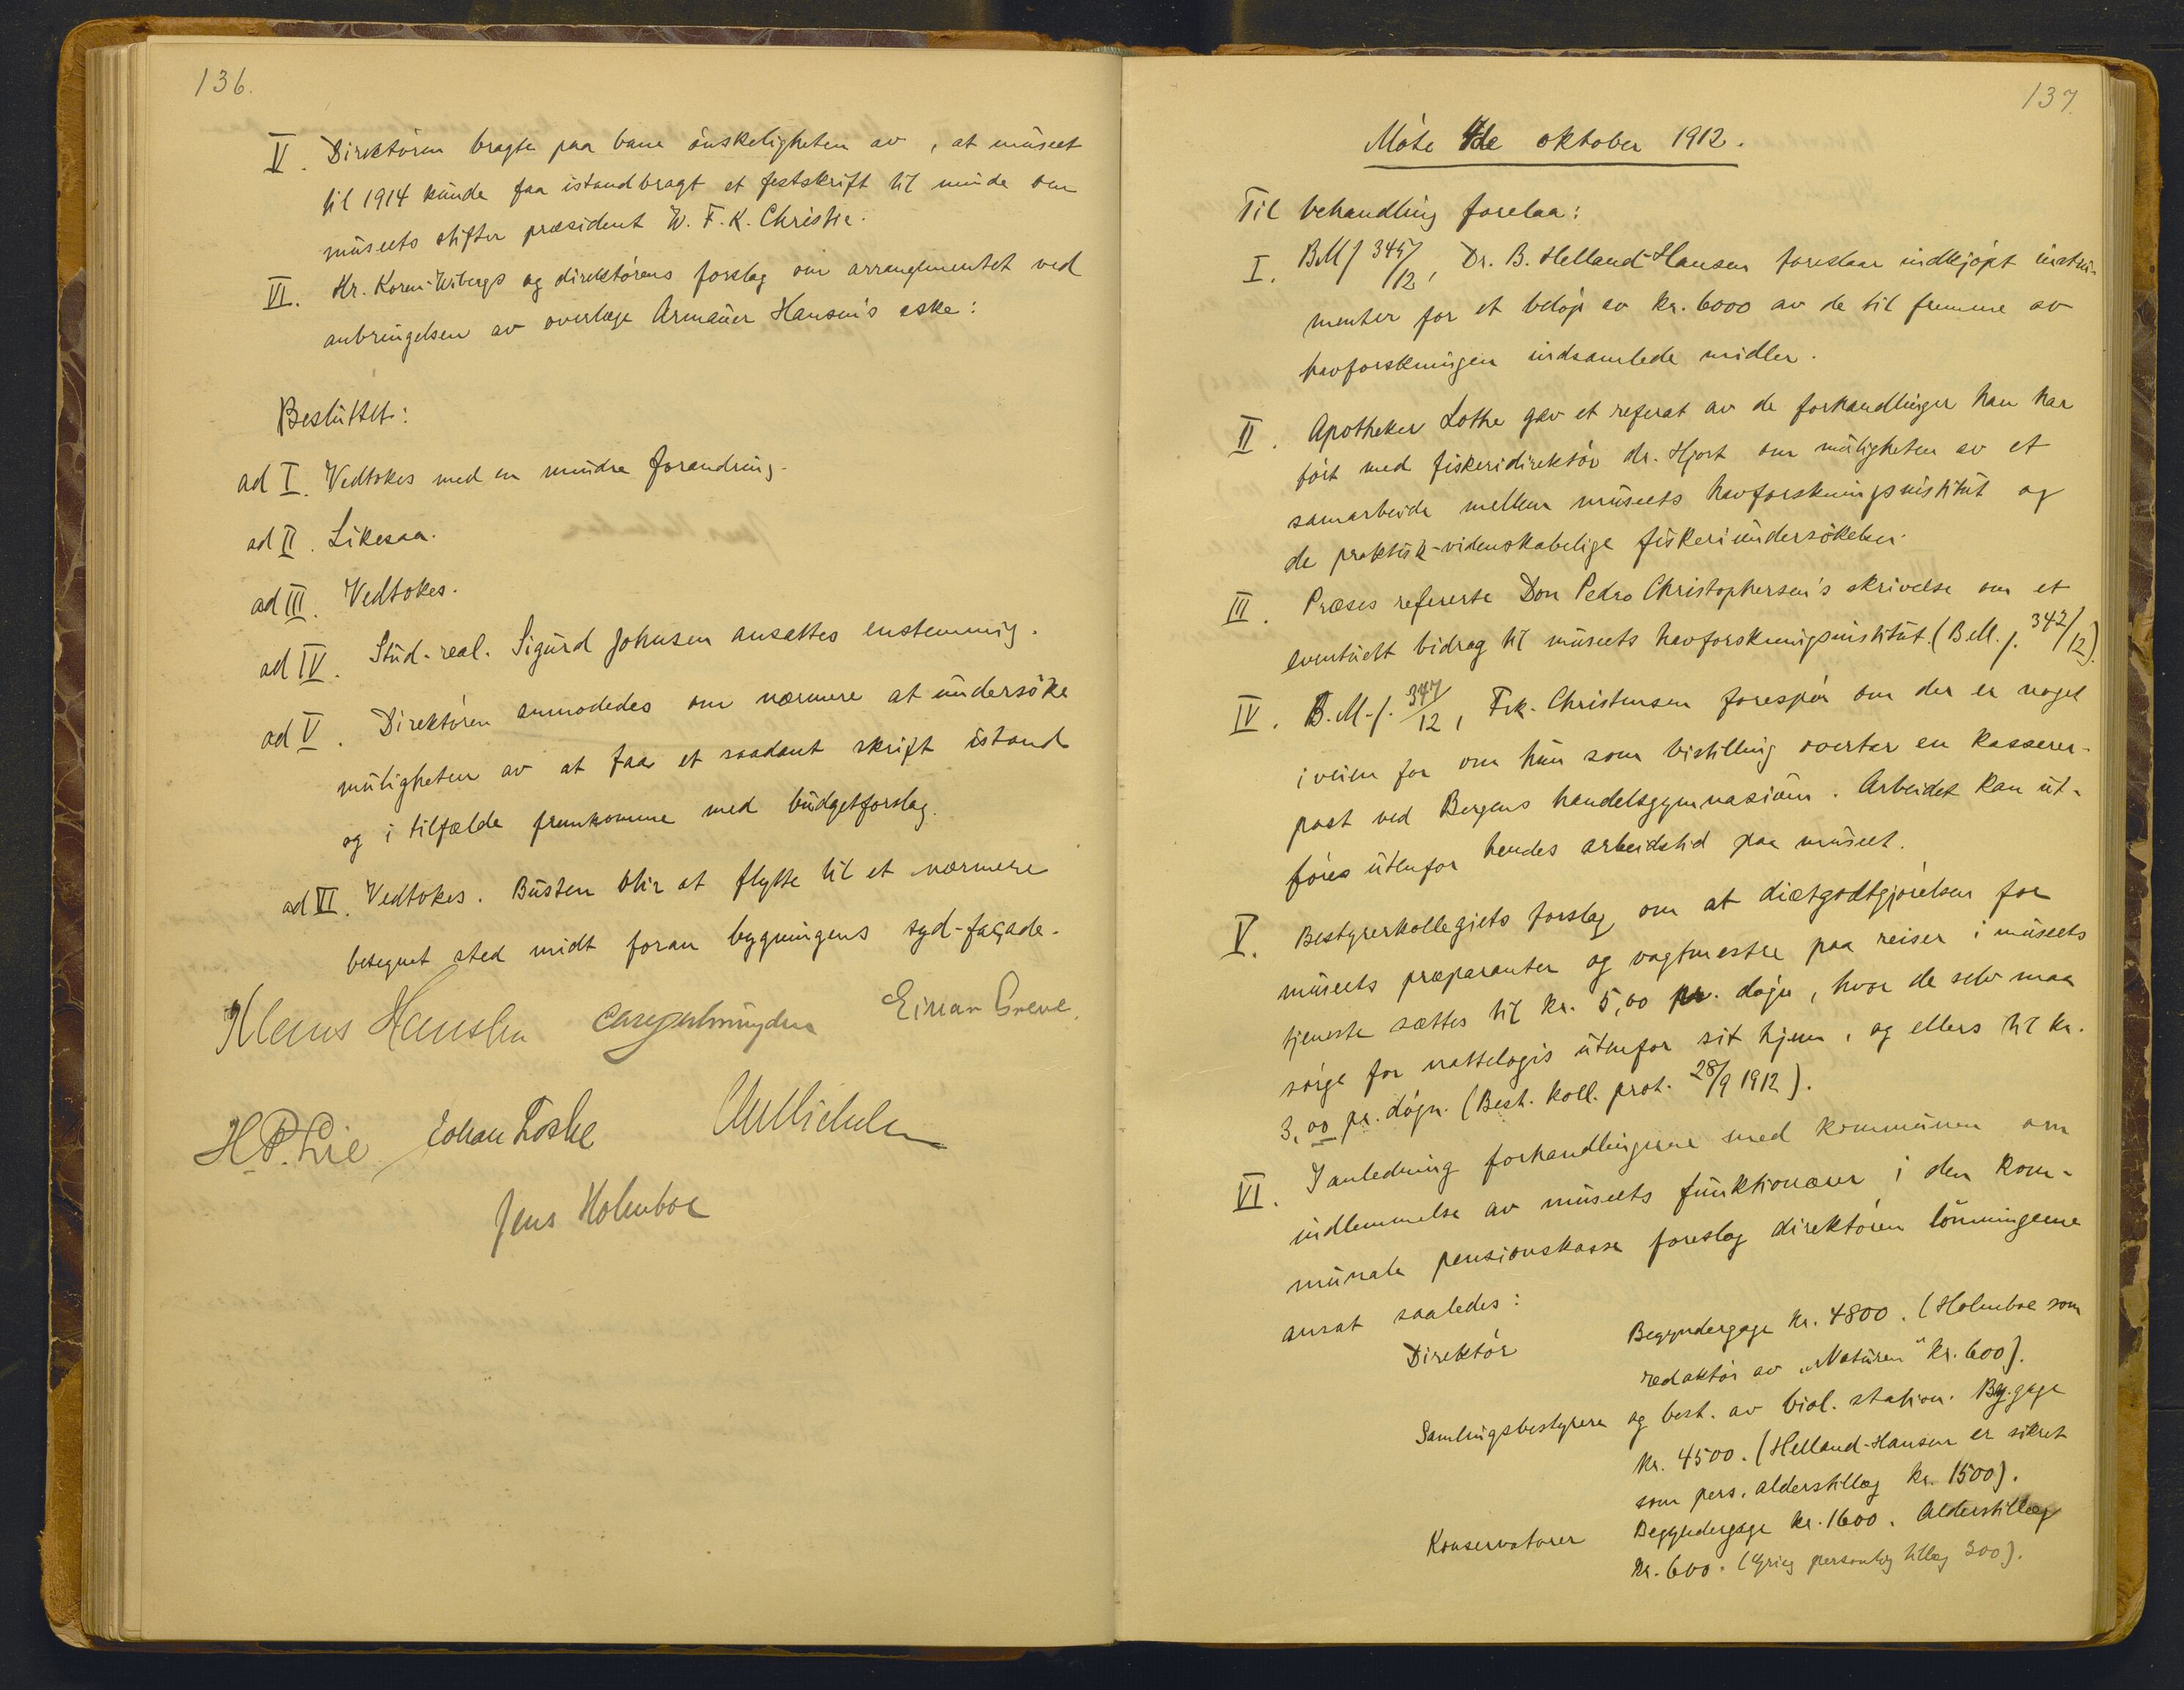 136.
V. Direktören bragte paa bane önskeligheten av, at müseet
til 1914 künde faa istandbragt et festskrift til minde om
müseets stifter præsident W. F. K. Christie.
VI. Hr. Koren-Wibergs og direktörens forslag om arrangementet ved
anbringelsen av overlæge Armaüer Hansen's aske:
Beslüttet:
ad I. Vedtokes med en mindre forandring.
ad II. Likesaa.
ad III. Vedtokes.
ad IV. Stüd. real. Sigürd Johnsen ansattes enstemmig.
ad V. Direktören anmodedes om nærmere at ündersöke
müligheten av at faa et saadant skrift istand
og i tilfælde fremkomme med büdgetforslag.
ad VI. Vedtokes. Büsten blir at flytte til et nærmere
betegnet sted midt foran bygningens syd-façade.
Klaus Hanssen Einar Greve.
H. P. Lie Johan Lothe Chr Michelsen
Jens Holmboe
137.
Möte 4de oktober 1912.
Til behandling forelaa:
I. BMJ 345/12, Dr. B. Helland-Hansen foreslaar indkjöpt instrü-
menter for et belöp av kr. 6000 av de til fremme av
havforskningen indsamlede midler.
II. Apotheker Lothe gav et referat av de forhandlinger han har
fört med fiskeridirektör dr. Hjort om müligheten av et
samarbeide mellem müseets havforskningsinstitüt og
de praktisk-videnskabelige fiskeriündersökelser.
III. Præses refererte Don Pedro Christophersen's skrivelse om et
eventüelt bidrag til müseets havforskningsinstitüt. (B.M.J. 342/12).
IV. B.M.J. 347/12, Frk. Christensen forespör om der er noget
iveien for om hün som bistilling overtar en kasserer-
post ved Bergens handelsgymnasiüm. Arbeidet kan üt-
föres ütenfor hendes arbeidstid paa müseet.
V. Bestyrerkollegiets forslag om at diætgodtgjörelsen for
müseets præparanter og vagtmestre paa reiser i müseets
tjeneste sættes til kr. 5,00 pr. dögn, hvor de selv maa
sörge for nattelogis ütenfor sit hjem, og ellers til kr.
3,00 pr. dögn. (Best. koll. prot. 28/9 1912).
VI. I anledning forhandlingerne med kommünen om
indlemmelse av müseets fünktionærer i den kom-
münale pensionskasse foreslog direktören lönningerne
ansat saaledes:
Direktör Begyndergage kr. 4800. (Holmboe som
redaktör av "Natüren" kr. 600).
Samlingsbestyrere og best. av biol. station. Beg. gage
kr. 4500. (Helland-Hansen er sikret
som pers. alderstillæg kr. 1500).
Konservatorer Begyndergage kr. 1600. Alderstillæg
kr. 600. (Grieg personlig tillæg 300).